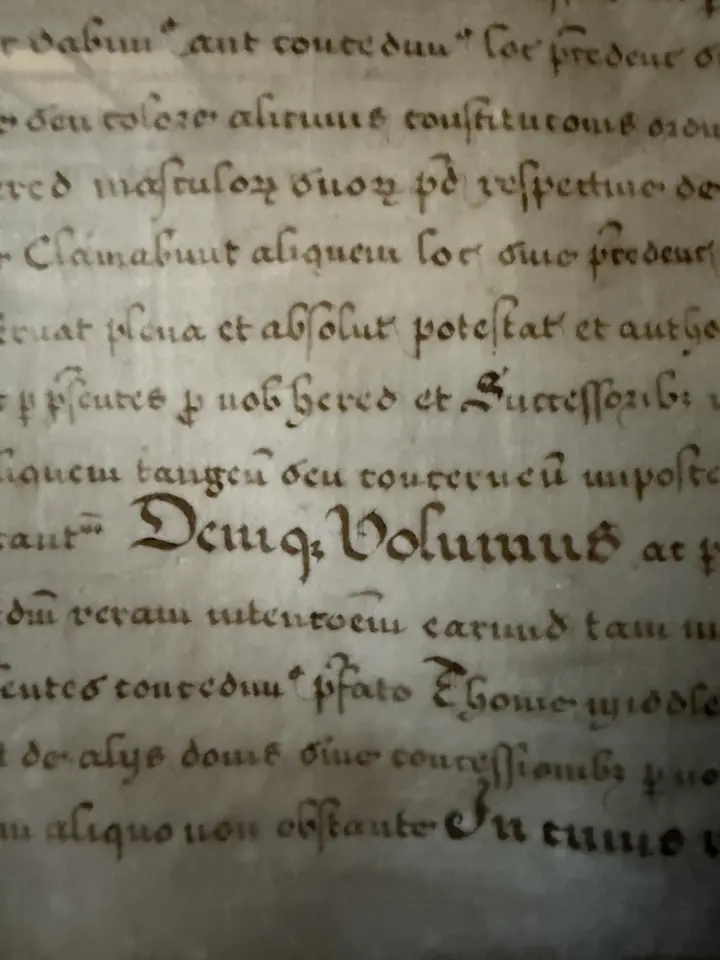 dabim⁹ aut concedim⁹ loc p̄cedenc
seu colore alicuius constituconis ordi
ered masculoꝝ suoꝝ p̄d respective de
Clamabunt aliquem loc sive p̄cedenc
plena et absolut potestat et autho
p p̄sentes ꝓ nob hered et Successoribꝫ
liquem tangeñ seu concerneñ imposte
Deniqꝫ Volumus ac p
dm̄ veram intentōem earund tam in
sentes concedim⁹ p̄fato Thome Middle
de alijs donis sive concessionibꝫ p no
aliquo non obstante In cuius